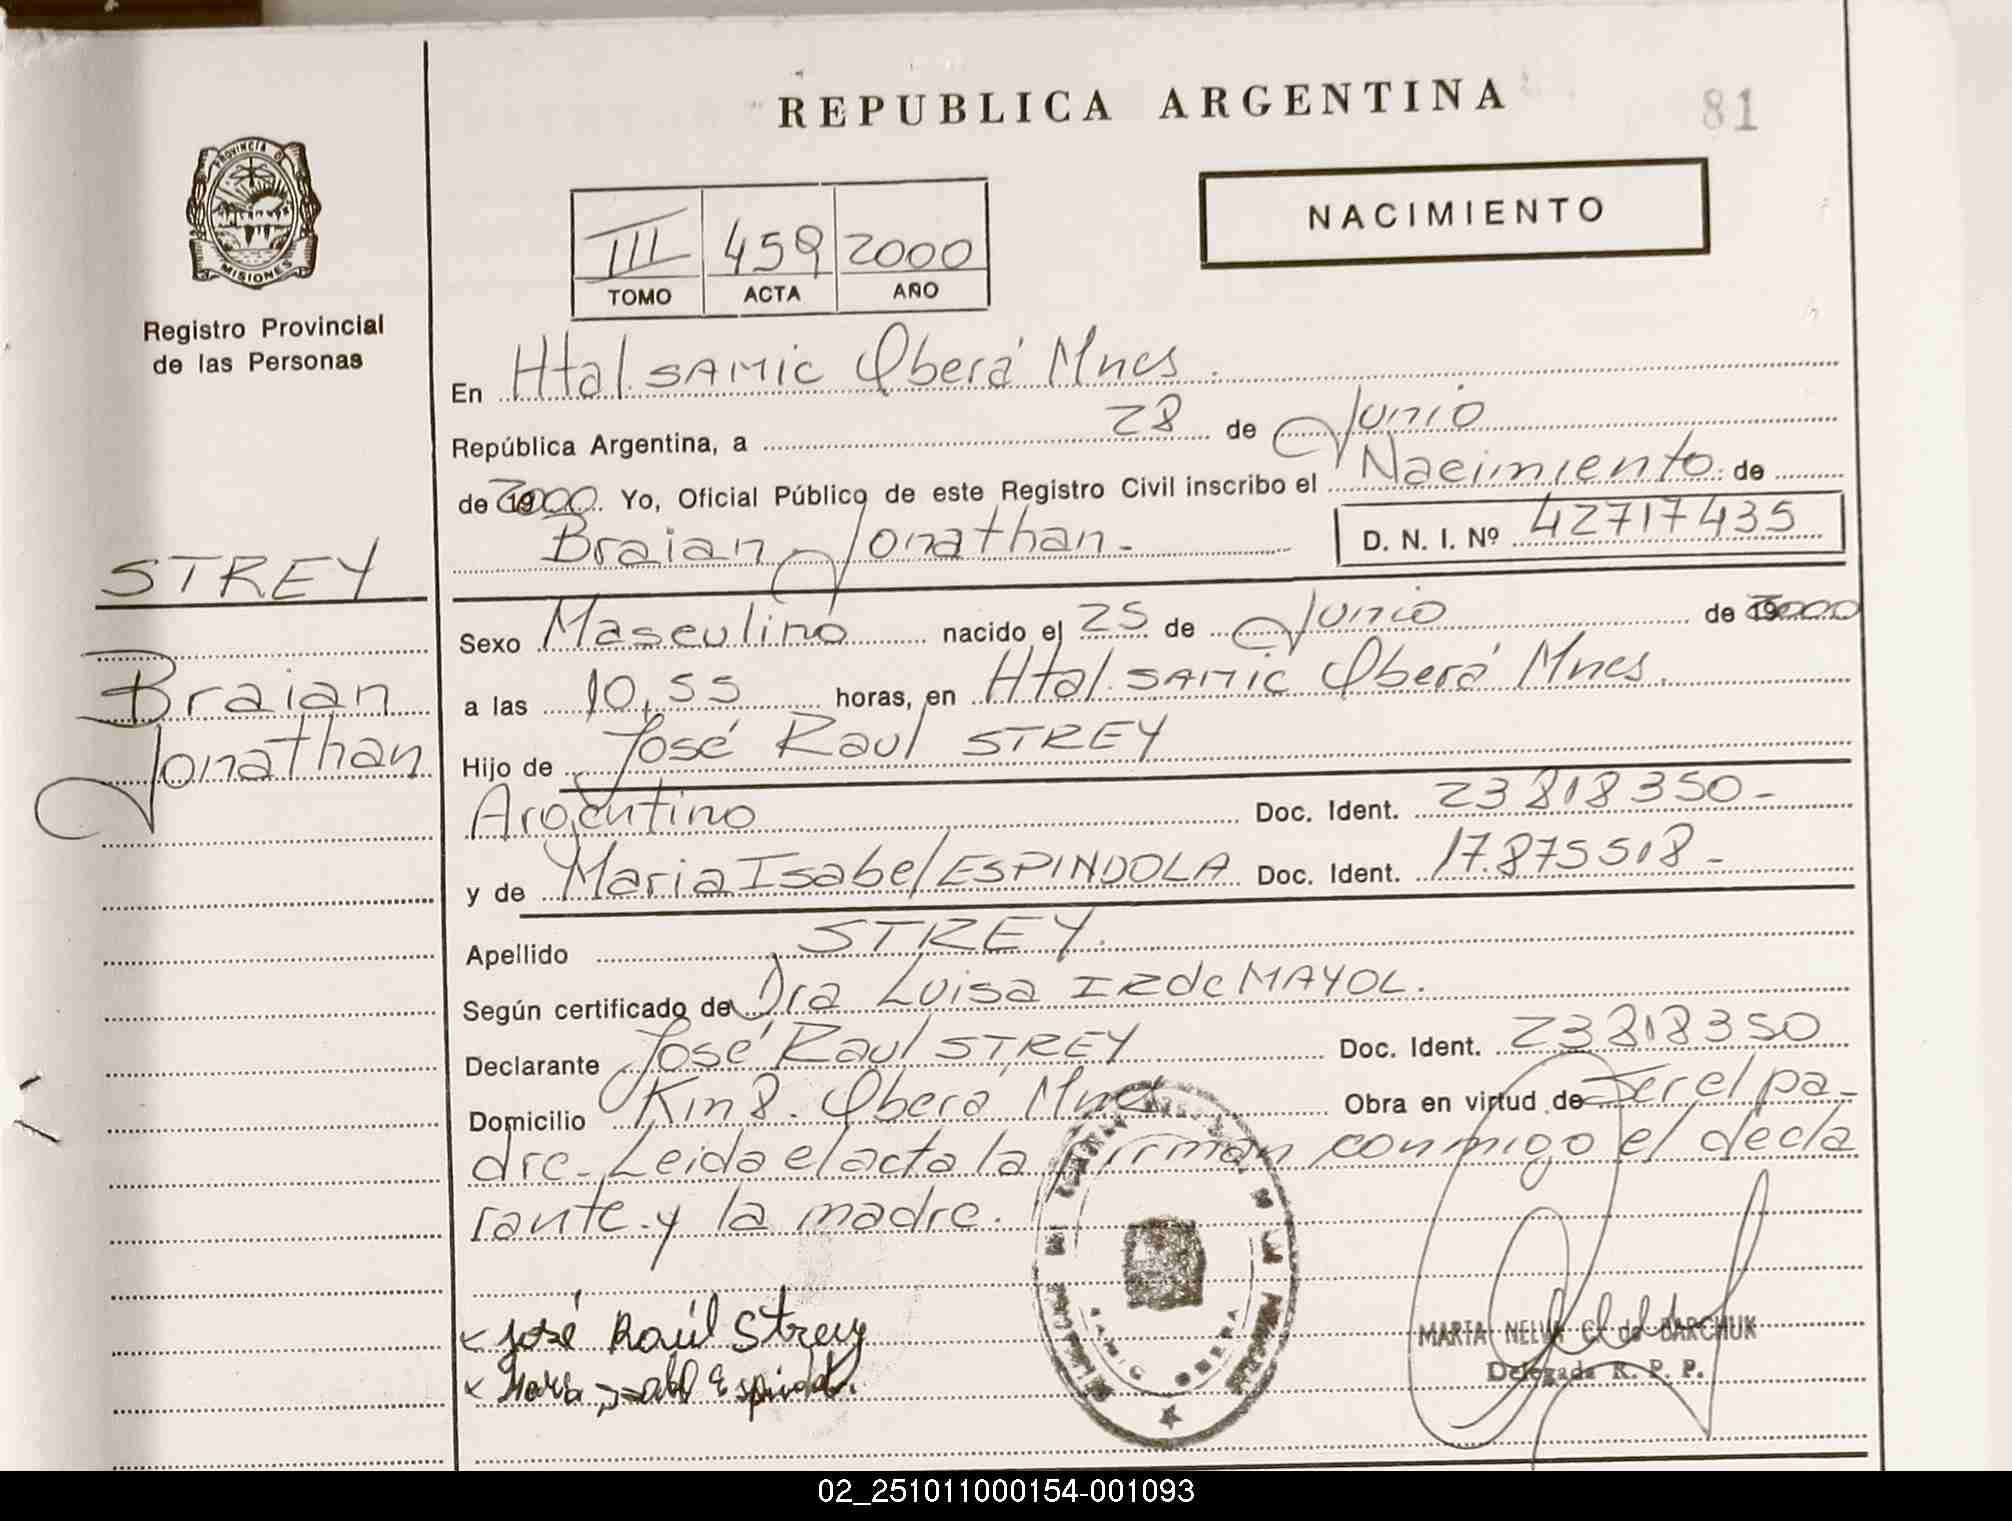 REPUBLICA ARGENTINA
81
PROVINCIA D
MISIONES
Registro Provincial
de las Personas
NACIMIENTO
III 459 2000
TOMO ACTA AÑO
En Htal. SAMIC Oberá Mnes.
República Argentina, a 28 de Junio
de 2000. Yo, Oficial Público de este Registro Civil inscribo el Nacimiento de
Braian Jonathan- D. N. I. Nº 42717435
STREY
Braian
Jonathan
Sexo Masculino nacido el 25 de Junio de 2000
a las 10,55 horas, en Htal. SAMIC Oberá Mnes.
Hijo de José Raul STREY
Argentino Doc. Ident. 23818350-
y de Maria Isabel ESPINDOLA Doc. Ident. 17.875518-
Apellido STREY.
Según certificado de Dra Luisa IRdeMAYOL.
Declarante José Raul STREY Doc. Ident. 23818350
Domicilio Km 8. Oberá Mnes Obra en virtud de Ser el pa-
dre- Leida el acta la firman conmigo el decla
rante.y la madre.
x José Raúl Strey
x Maria Isabel Espindola.
SAMIC OBERA
MARTA NELVA de BARCHUK
Delegada R. P. P.
02_251011000154-001093